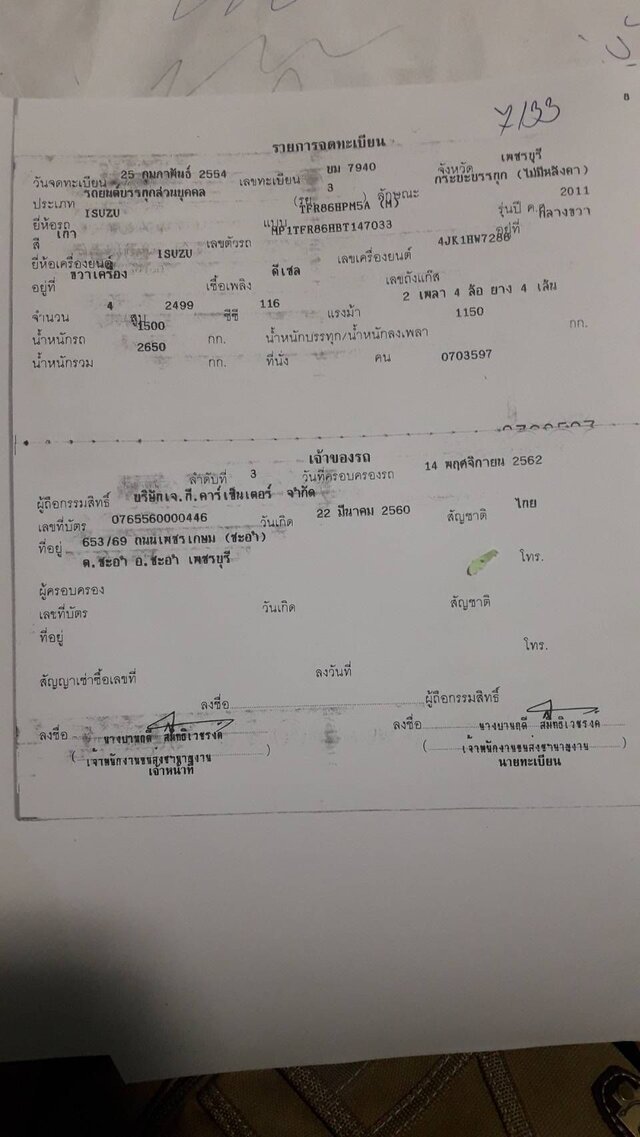 7/33
รายการจดทะเบียน
วันจดทะเบียน 25 กุมภาพันธ์ 2554 เลขทะเบียน ขม 7940 จังหวัด เพชรบุรี
ประเภท รถยนต์บรรทุกส่วนบุคคล (รย 3 ) ลักษณะ กระบะบรรทุก (ไม่มีหลังคา)
ยี่ห้อรถ ISUZU แบบ TFR86HPM5A (M) รุ่นปี ค.ศ 2011
สี เทา เลขตัวรถ MP1TFR86HBT147033 อยู่ที่ กลางขวา
ยี่ห้อเครื่องยนต์ ISUZU เลขเครื่องยนต์ 4JK1HW7286
อยู่ที่ ขวาเครื่อง เชื้อเพลิง ดีเซล เลขถังแก๊ส
จำนวน 4 สูบ 2499 ซีซี 116 แรงม้า 2 เพลา 4 ล้อ ยาง 4 เส้น
น้ำหนักรถ 1500 กก. น้ำหนักบรรทุก/น้ำหนักลงเพลา 1150 กก.
น้ำหนักรวม 2650 กก. ที่นั่ง คน 0703597
เจ้าของรถ
ลำดับที่ 3 วันที่ครอบครองรถ 14 พฤศจิกายน 2562
ผู้ถือกรรมสิทธิ์ บริษัทเจ.ที.คาร์เซ็นเตอร์ จำกัด
เลขที่บัตร 0765560000446 วันเกิด 22 มีนาคม 2560 สัญชาติ ไทย
ที่อยู่ 653/69 ถนนเพชรเกษม (ชะอำ)
ต.ชะอำ อ.ชะอำ เพชรบุรี โทร.
ผู้ครอบครอง
เลขที่บัตร วันเกิด สัญชาติ
ที่อยู่
โทร.
สัญญาเช่าซื้อเลขที่ ลงวันที่
ลงชื่อ ผู้ถือกรรมสิทธิ์
ลงชื่อ ลงชื่อ
( เจ้าพนักงานขนส่งชำนาญงาน ) ( เจ้าพนักงานขนส่งชำนาญงาน )
เจ้าหน้าที่ นายทะเบียน